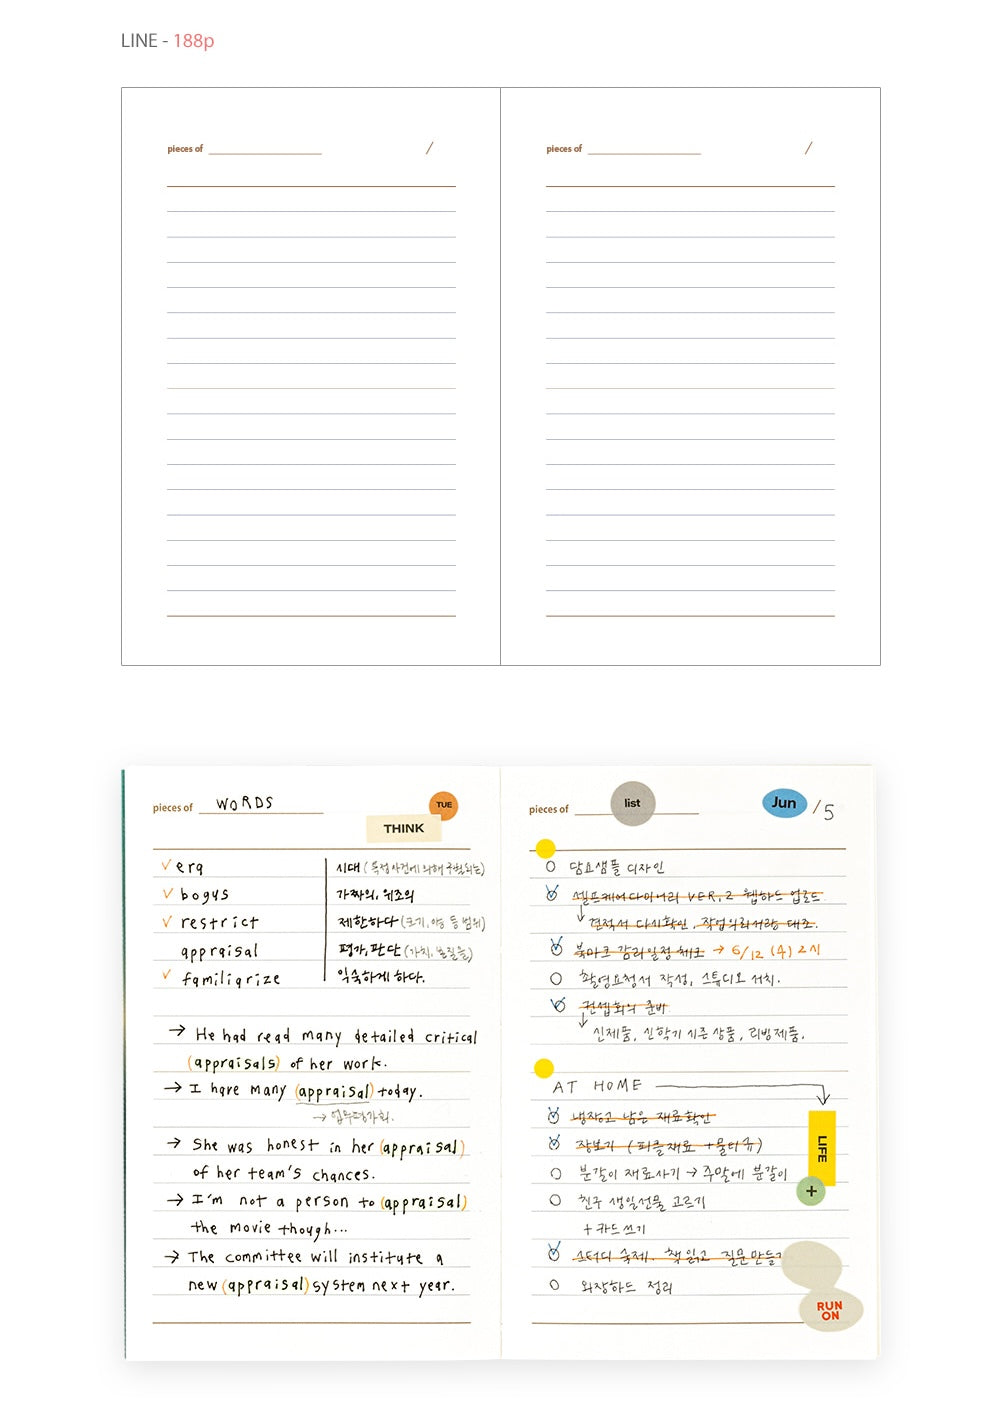 LINE - 188p
pieces of /
pieces of /
pieces of WORDS
TUE
THINK
era 시대 (특정사건에 의해 구분되는)
bogus 가짜의, 위조의
restrict 제한하다 (크기, 양 등 범위)
appraisal 평가, 판단 (가치, 본질을)
familiarize 익숙하게 하다.
→ He had read many detailed critical
(appraisals) of her work.
→ I have many (appraisal) today.
→ 업무평가회.
→ She was honest in her (appraisal)
of her team's chances.
→ I'm not a person to (appraisal)
the movie though...
→ The committee will institute a
new (appraisal) system next year.
pieces of list
Jun / 5
담요샘플 디자인
셀프케어다이어리 VER.2 웹하드 업로드
견적서 다시확인, 작업의뢰서랑 대조.
북마크 감리일정 체크 → 6/12 (수) 2시
촬영요청서 작성, 스튜디오 서치.
컨셉회의 준비
신제품, 신학기 시즌상품, 리빙제품.
AT HOME
냉장고 남은 재료확인
장보기 (피클재료 + 물티슈)
분갈이 재료사기 → 주말에 분갈이
친구 생일선물 고르기
+ 카드쓰기
스터디 숙제. 책읽고 질문만들기
외장하드 정리
LIFE
+
RUN
ON